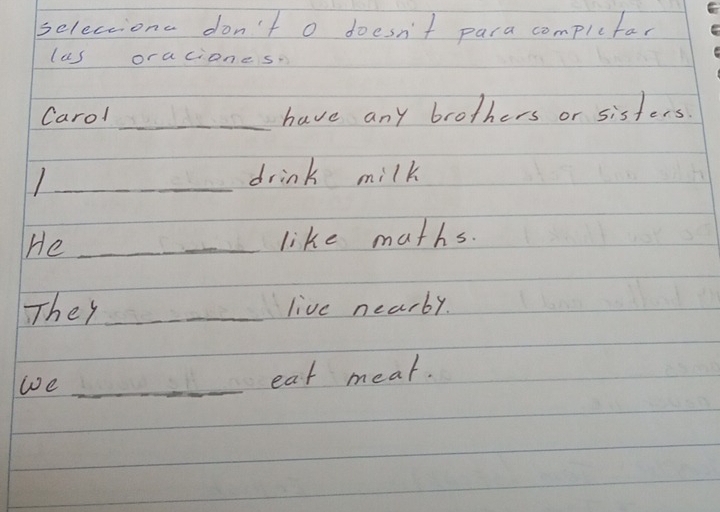 selecciona don't o doesn't para completar
las oraciones.
Carol __________ have any brothers or sisters.
I __________ drink milk
He __________ like maths.
They __________ live nearby.
we __________ eat meat.